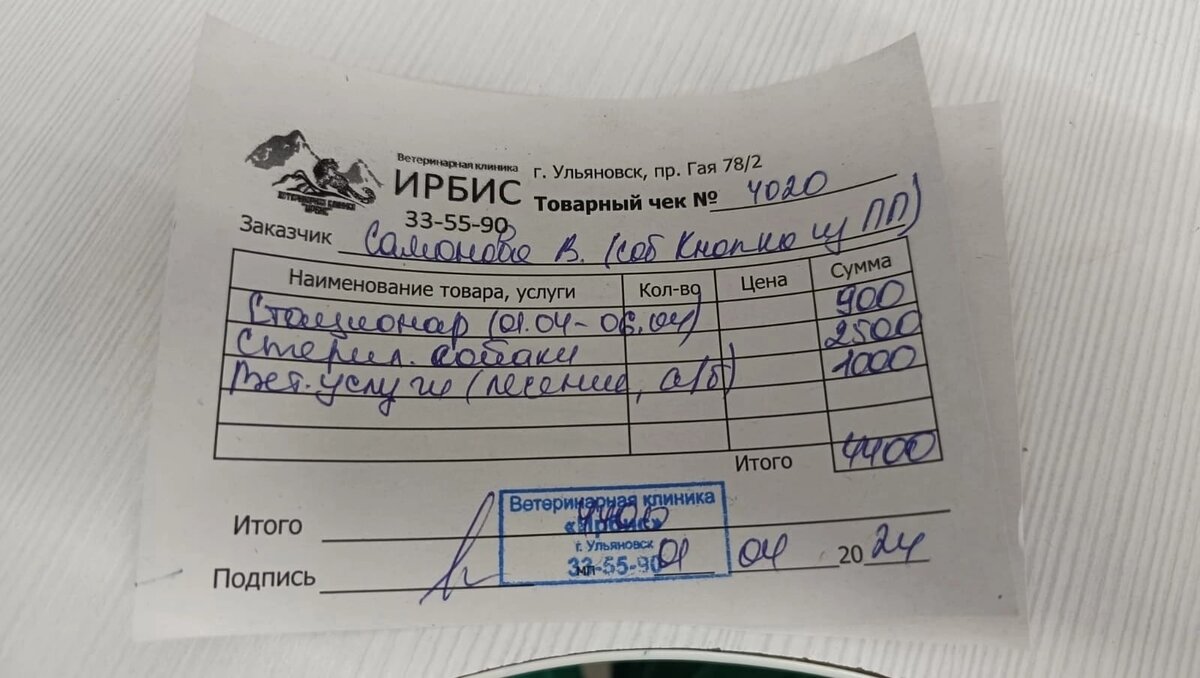 Ветеринарная клиника
ИРБИС
33-55-90
ВЕТЕРИНАРНАЯ КЛИНИКА
ИРБИС
г. Ульяновск, пр. Гая 78/2
Товарный чек № 4020
Заказчик Самонова В. (соб Кнопка из ПП)
Наименование товара, услуги Кол-во Цена Сумма
Стационар (01.04-06.04) 900
Стерил. собаки 2500
Вет. услуги (лечение, а/б) 1000
Итого 4400
Итого 4400
Подпись
Ветеринарная клиника
«Ирбис»
г. Ульяновск
33-55-90
мп 01 04 2024